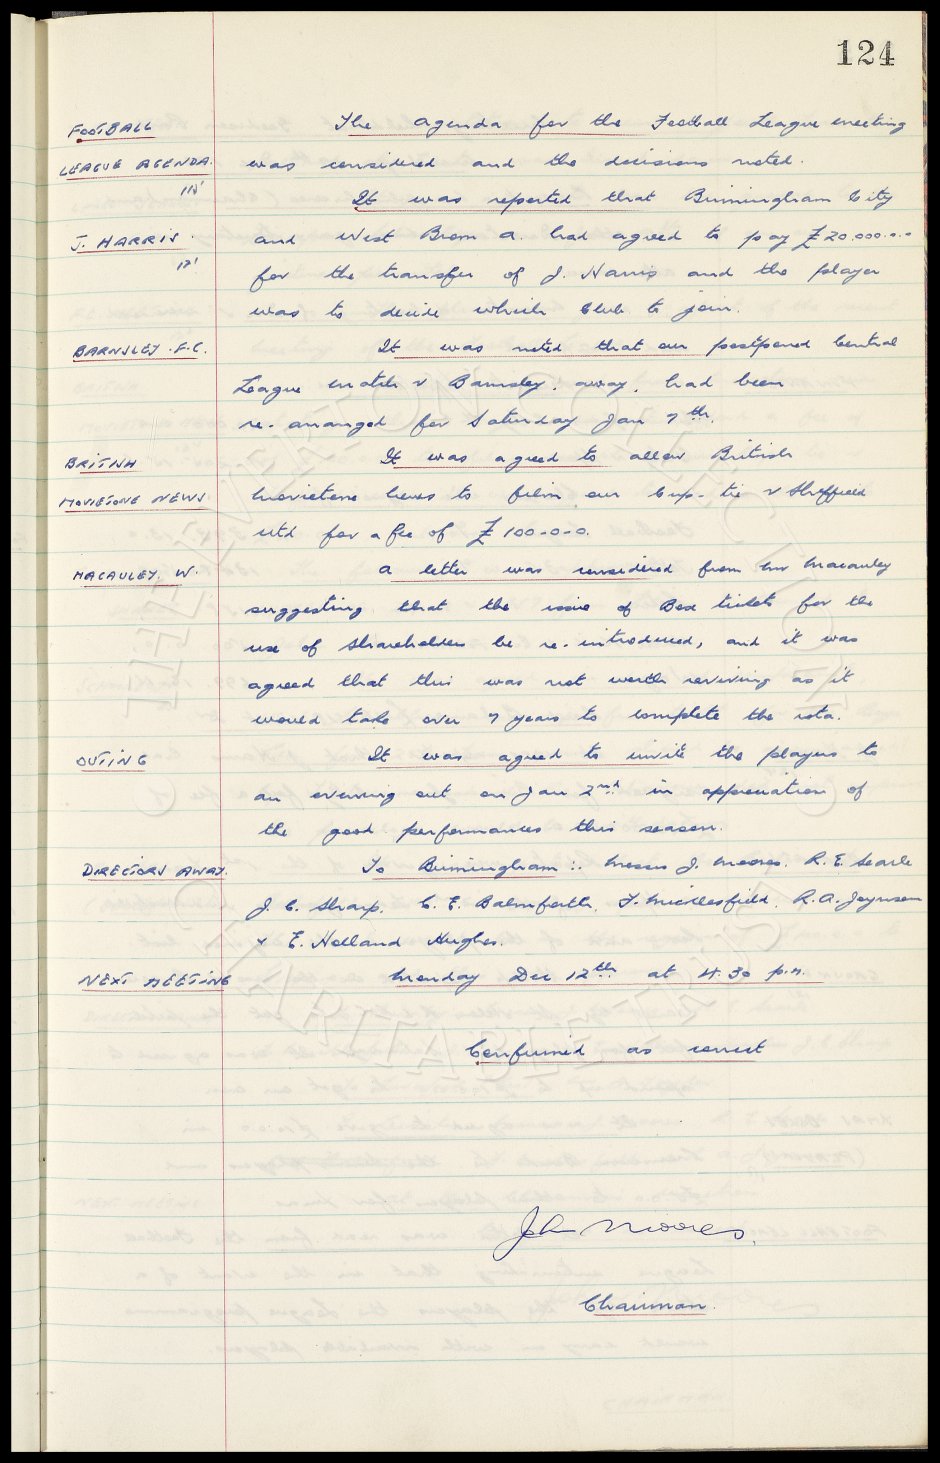 124
FOOTBALL The agenda for the Football League meeting
LEAGUE AGENDA. was considered and the decisions noted.
It was reported that Birmingham City
J. HARRIS. and West Brom A. had agreed to pay £20,000.0.0
for the transfer of J. Harris and the player
was to decide which Club to join.
BARNSLEY. F.C. It was noted that our postponed Central
League match v Barnsley, away, had been
re-arranged for Saturday Jan 7th.
BRITISH It was agreed to allow British
MOVIETONE NEWS Movietone News to film our Cup-tie v Sheffield
Utd for a fee of £100-0-0.
MACAULEY. W. A letter was considered from Mr Macauley
suggesting that the issue of Box tickets for the
use of Shareholders be re-introduced, and it was
agreed that this was not worth reviving as it
would take over 7 years to complete the rota.
OUTING It was agreed to invite the players to
an evening out on Jan 2nd in appreciation of
the good performances this season.
DIRECTORS AWAY. To Birmingham :- Messrs J. Moores. R. E. Searle
J. C. Sharp. C. E. Balmforth. F. Micklesfield. R. A. Joynson
& E. Holland Hughes.
NEXT MEETING Monday Dec 12th at 4.30 p.m.
Confirmed as correct
John Moores.
Chairman.